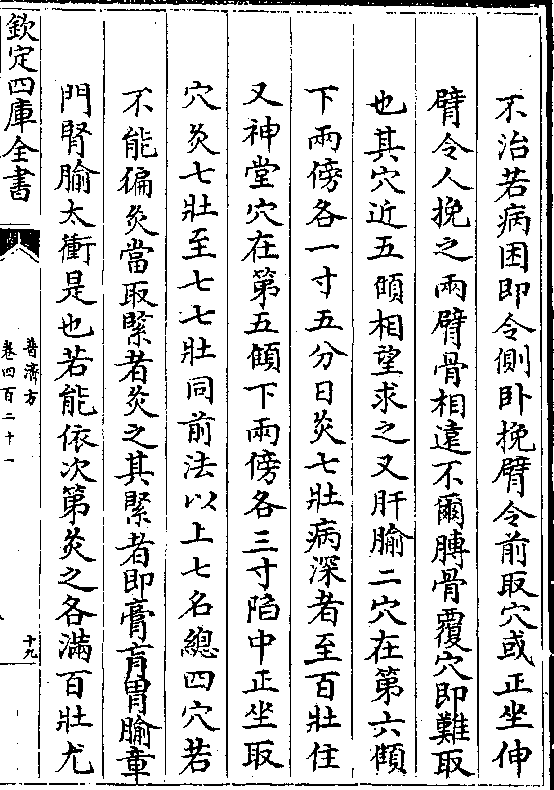 不治若病困即令側卧挽臂令前取穴或正坐伸
臂令人挽之兩臂骨相逺不爾膊骨覆穴即難取
也其穴近五顀相望求之又肝腧二穴在第六顀
下兩傍各一寸五分日灸七壯病深者至百壯住
又神堂穴在第五顀下兩傍各三寸陷中正坐取
穴灸七壯至七七壯同前法以上七名總四穴若
不能徧灸當取緊者灸之其緊者即膏肓胃腧章
門腎腧太衝是也若能依次第灸之各滿百壯尤
欽定四庫全書
普濟方
卷四百二十一
十九